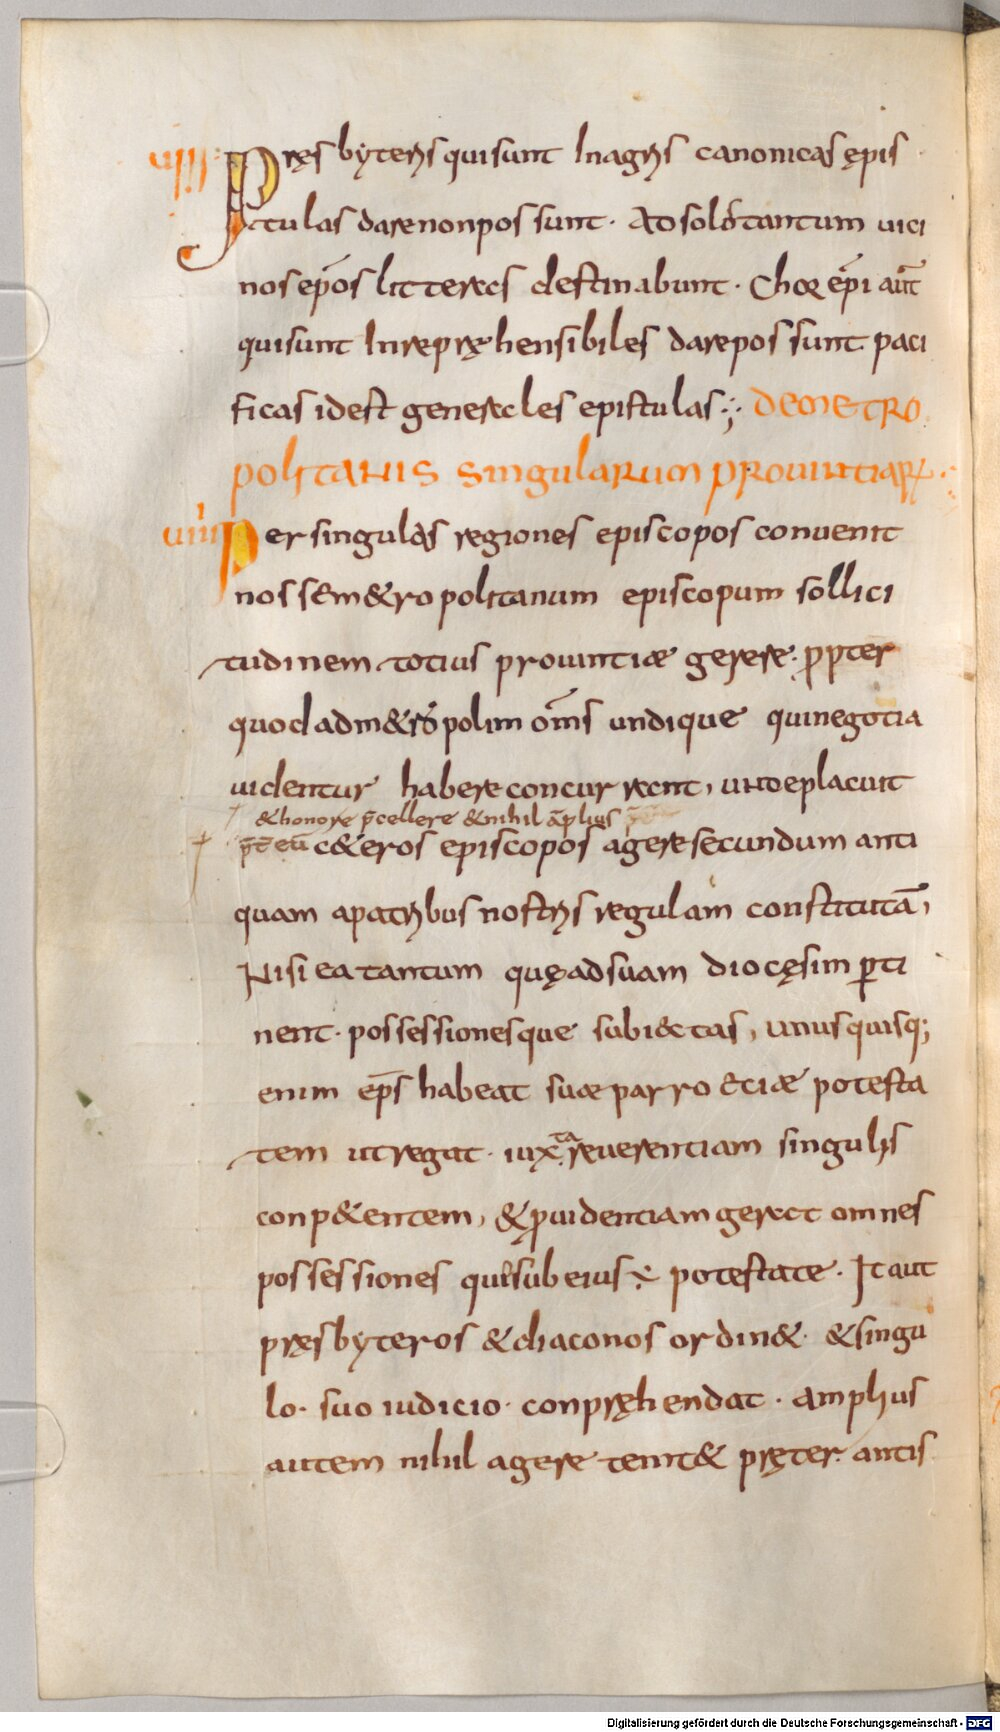 uiii Pręsbyteris qui sunt In agris canonicas epis
tulas dare non possunt · Ad solos tantum uici
nos ep̄os litteras destinabunt · Chorep̄i aut̄
qui sunt Inrepręhensibiles dare possunt paci
ficas id est generales epistulas ; DE METRO
POLITANIS SINGULARUM PROUINTIARŪ
uiiii Per singulas regiones episcopos conuenit
nosse m&ropolitanum episcopum sollici
tudinem totius prouintiæ gerere · propter
quod ad m&ropolim om̄s undique qui negotia
uidentur habere concurrant, unde placuit
& honore p̄cellere & nihil āplius
p̄t eū c&eros episcopos agere secundum anti
quam a patribus nostris regulam constitutā,
Nisi ea tantum quę ad suam diocęsim perti
nent · possessionesque subiectas, unusquisq;
enim ep̄s habeat suæ parroeciæ potesta
tem ut regat · iuxta reuerentiam singulis
conp&entem, & prouidentiam gerat omnes
possessiones qui sub eius ÷ potestate · It aut
pręsbyteros & diaconos ordin& · & singu
lo · suo iudicio · conpręhendat · amplius
autem nihil agere temt& pręter antis